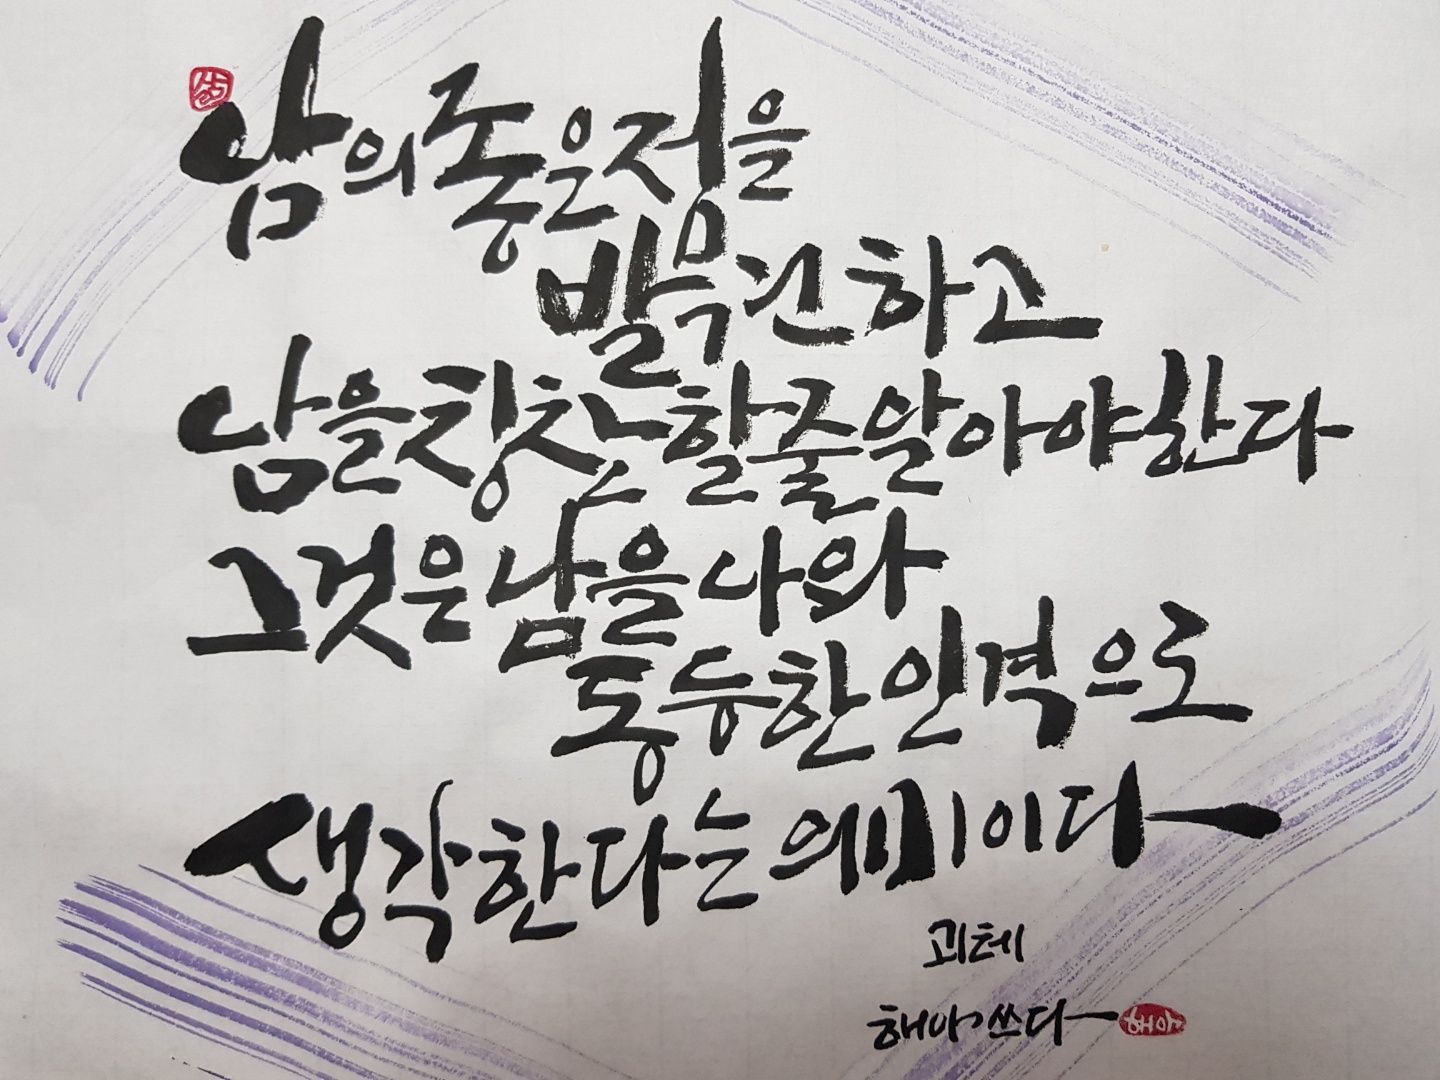 남의 좋은 점을
발견하고
남을 칭찬할 줄 알아야 한다
그것은 남을 나와
동등한 인격으로
생각한다는 의미이다
괴테
해아 쓰다
해아